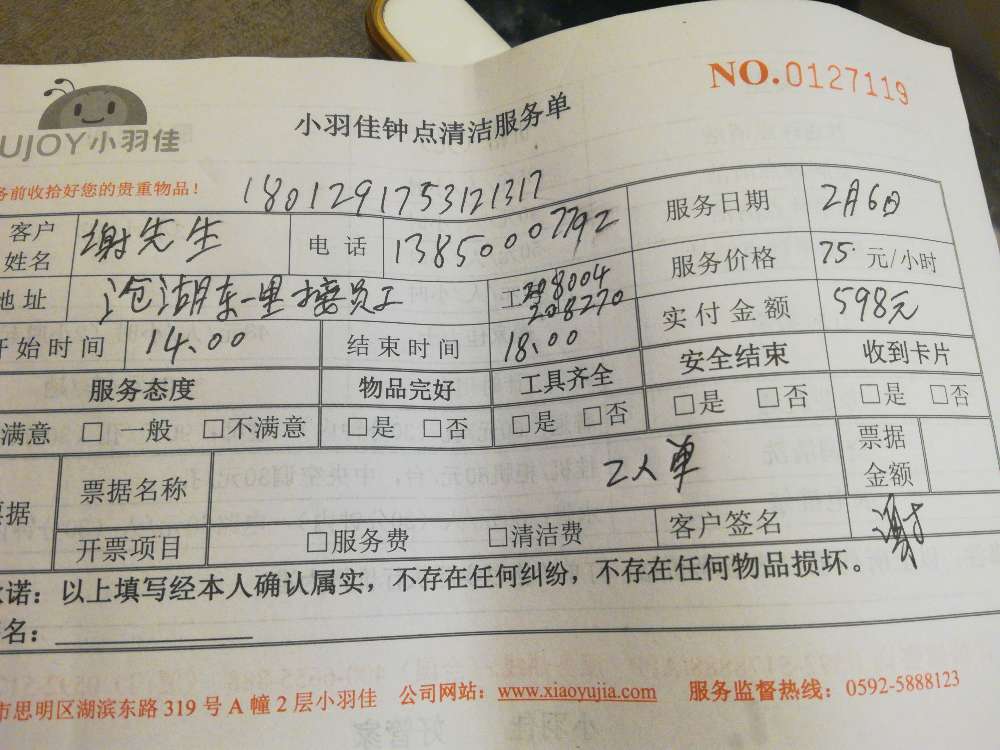 NO.0127119
UJOY小羽佳
小羽佳钟点清洁服务单
务前收拾好您的贵重物品！
1801291753121317
客户姓名 谢先生 电话 13850007792 服务日期 2月6日
服务价格 75 元/小时
地址 沧湖东一里接员工 工号 208004 208270
实付金额 598元
开始时间 14.00 结束时间 18.00 安全结束 收到卡片
服务态度 物品完好 工具齐全 □是 □否 □是 □否
满意 □一般 □不满意 □是 □否 □是 □否
票据 票据名称 2人单 票据金额
开票项目 □服务费 □清洁费 客户签名 谢
诺：以上填写经本人确认属实，不存在任何纠纷，不存在任何物品损坏。
名：
市思明区湖滨东路319号A幢2层小羽佳 公司网站：www.xiaoyujia.com 服务监督热线：0592-5888123